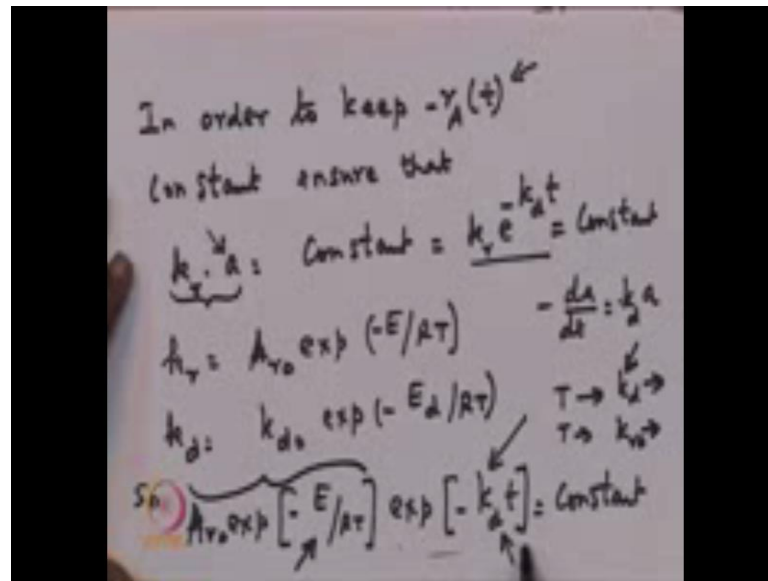 In order to keep -r_A(t) ←
Constant ensure that
k_r · a = Constant = k_r e^{-k_d t} = Constant
k_r = A_{ro} exp (-E/RT)
-da/dt = k_d a
k_d = k_{do} exp (-E_d/RT)
T → k_d →
T → k_{ro} →
So A_{ro} exp [-E/RT] exp [-k_d t] = Constant